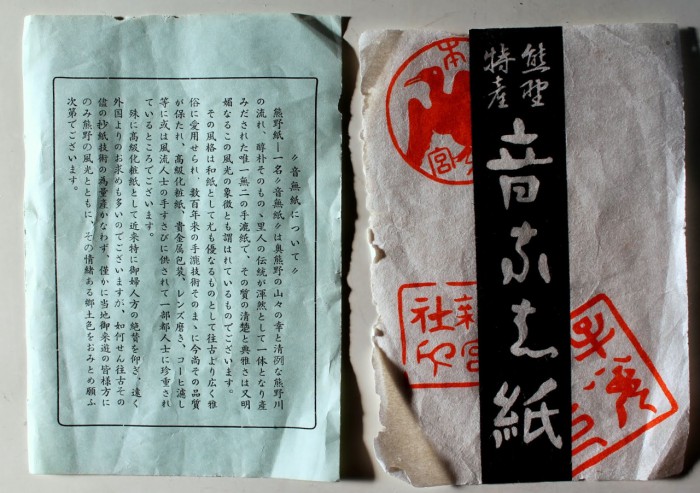 熊野
特産
音なし紙
本
宮
新宮
社印
〃音無紙について〃
熊野紙―一名〃音無紙〃は奥熊野の山々の幸と清冽な熊野川
の流れ、醇朴そのものゝ里人の伝統が渾然として一体となり産
みだされた唯一無二の手漉紙で、その質の清楚と典雅さは又明
媚なるこの風光の象徴とも謂はれているものでございます。
その風格は和紙として尤も優なるものとして往古より広く雅
俗に愛用せられ、数百年来の手漉技術そのまゝに今尚その品質
が保たれ、高級化粧紙、貴金属包装、レンズ磨き、コーヒ漉し
等に或は風流人士の手すさびに供されて一部都人士に珍重され
ているところでございます。
殊に高級化粧紙として近来特に御婦人方の絶賛を仰ぎ、遠く
外国よりのお求めも多いのでございますが、如何せん往古その
儘の抄紙技術の為量産かなわず、僅かに当地御来遊の皆様方に
のみ熊野の風光とともに、その情緒ある郷土色をおみとめ願ふ
次第でございます。